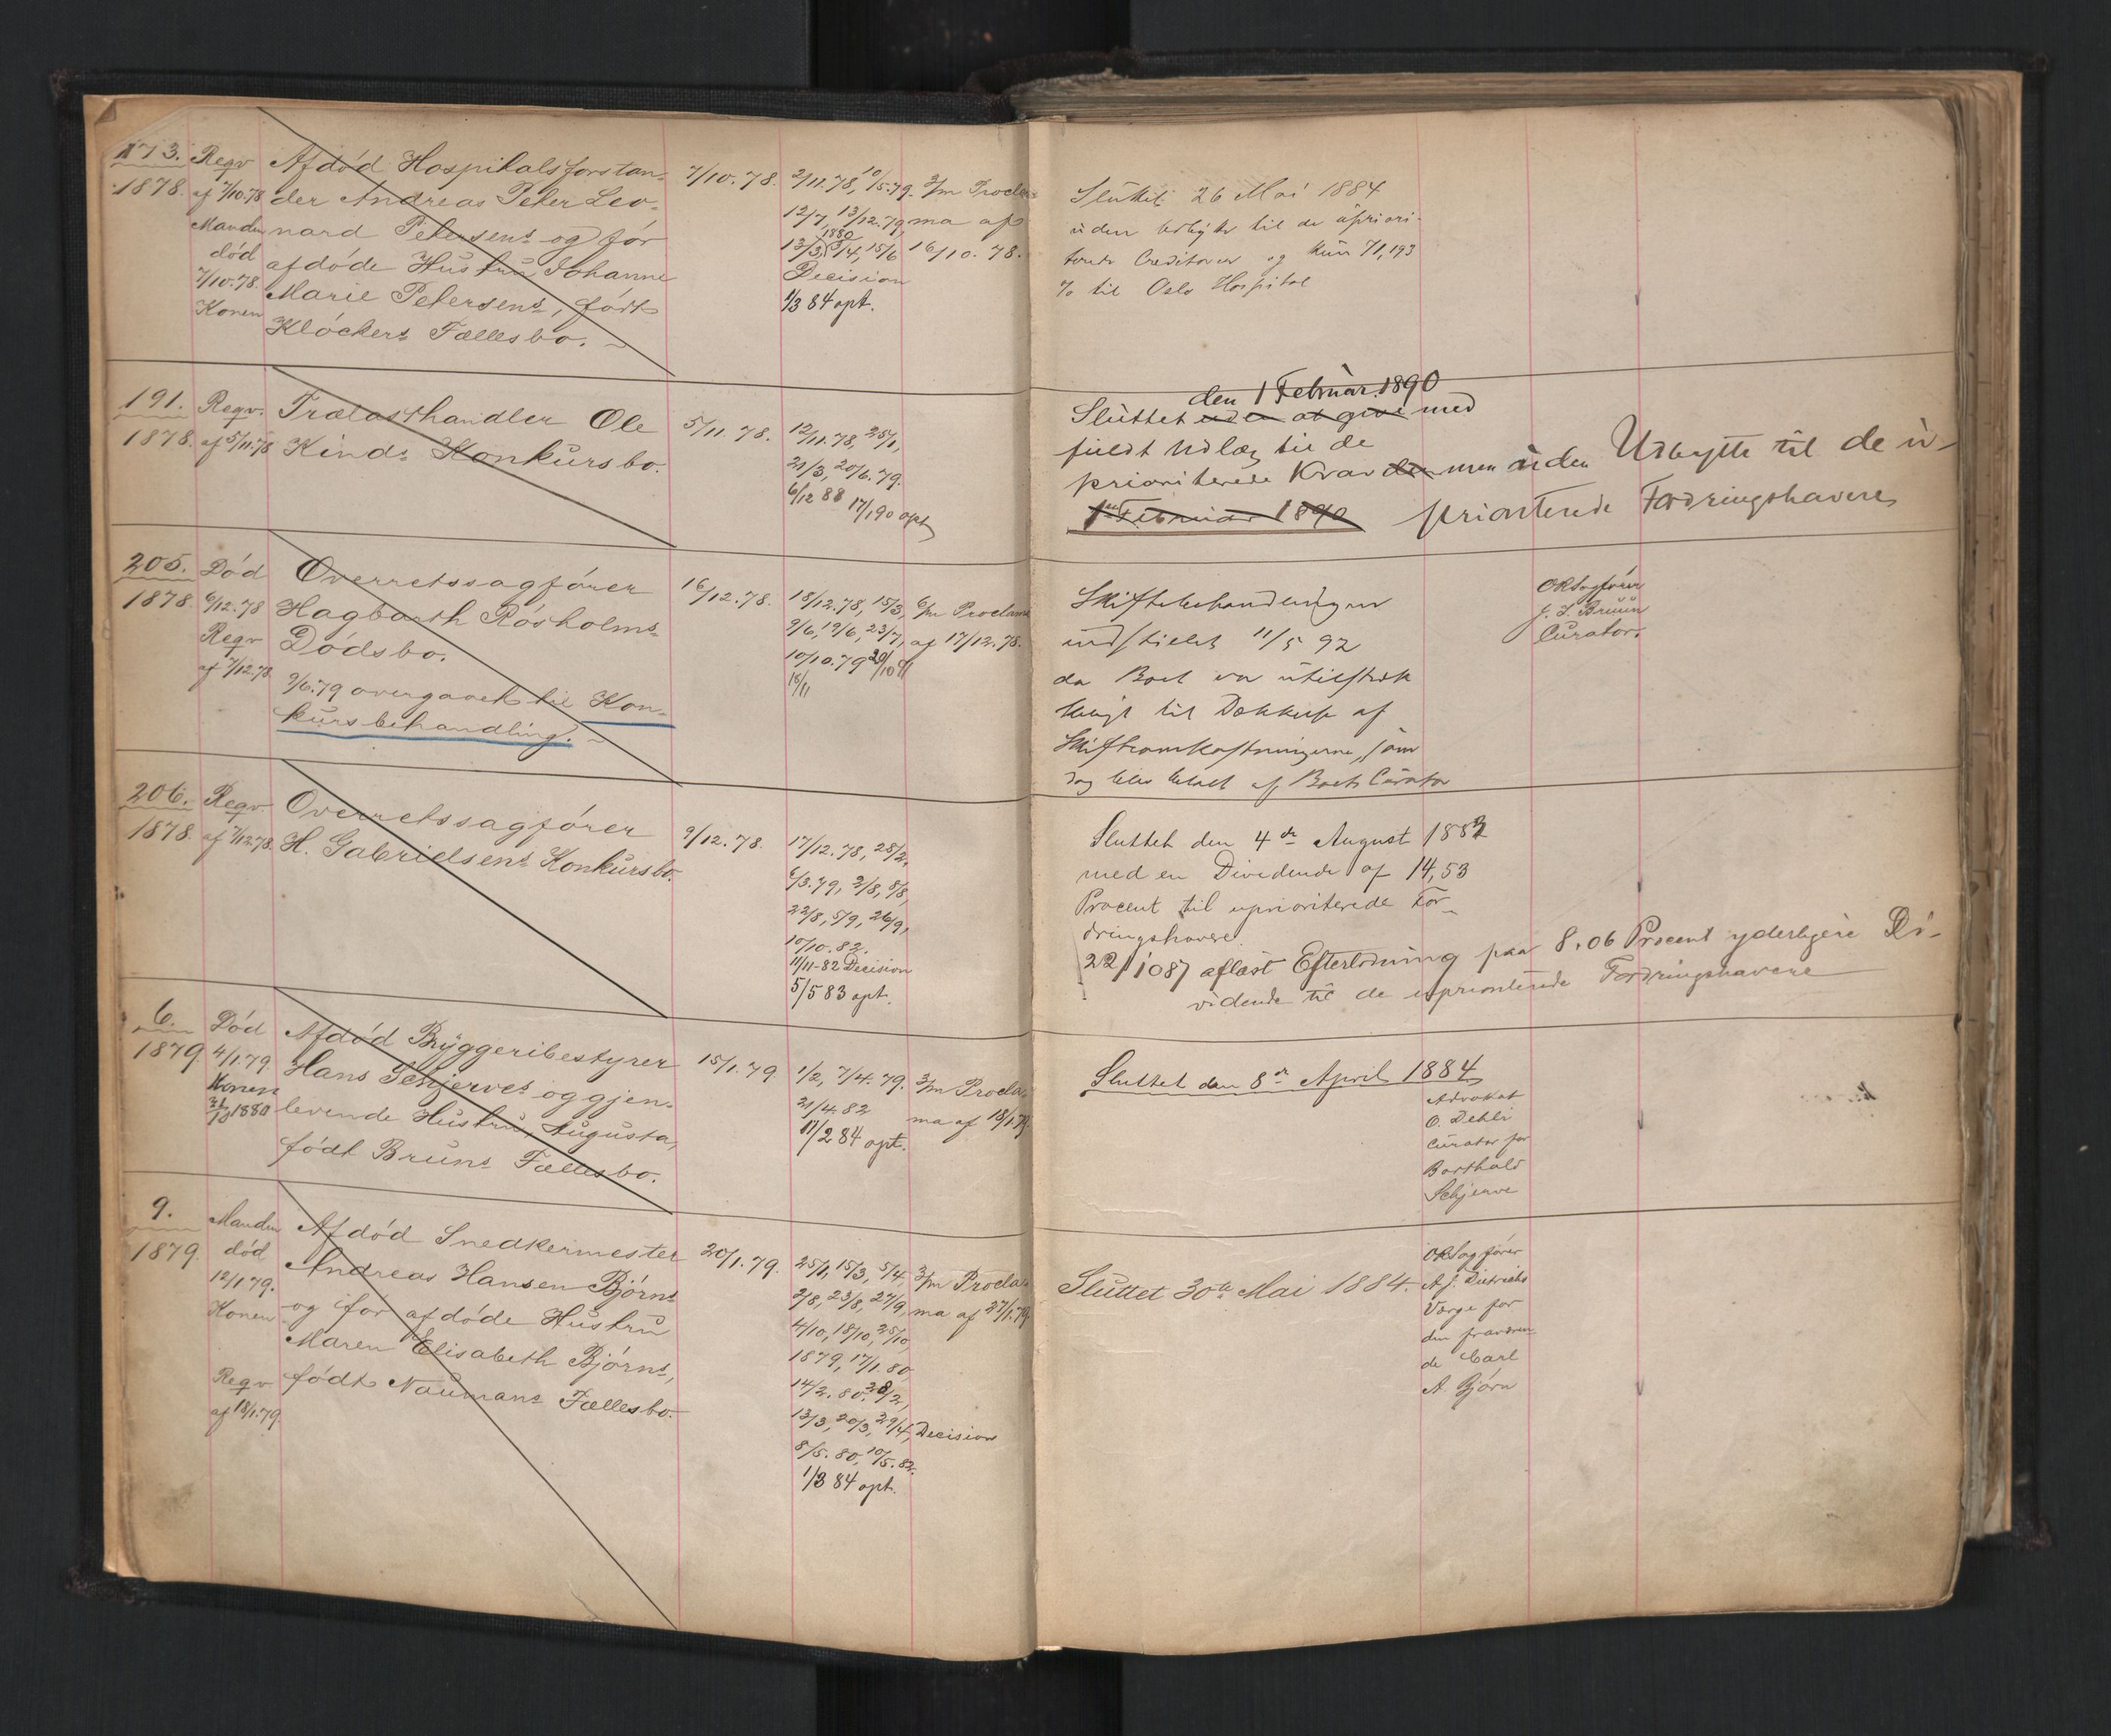 173. Reqv Afdød Hospitalsforstan- 7/10.78. 2/11.78, 10/5.79. 3/m Procla-
1878. af 7/10.78 der Andreas Peter Leo- 12/7, 13/12.79, ma af
Manden nard Petersens og før 1880
død afdøde Hustru Johanne 13/3, 3/4, 15/6 16/10.78.
7/10.78. Marie Petersens, født Decision
Konen Kløckers Fællesbo. 1/3 84 opt.
Sluttet 26 Mai 1884
uden Udbytte til de upriori-
terede Creditorer og kun 71,193
% til Oslo Hospital
191. Reqv. Trælasthandler Ole 5/11.78. 12/11.78, 25/1,
1878. af 5/11.78 Kinds Konkursbo. 21/3, 20/6.79.
6/12 88 17/1 90 opt
den 1 Februar 1890
Sluttet uden at give med
fuldt Udlæg til de
prioriterede Krav den men uden Udbytte til de u-
1ste Februar 1890 prioriterede Fordringshavere
205. Død Overretssagfører 16/12.78. 18/12.78, 15/3, 6/m Proclama
1878. 6/12.78 Hagbarth Røsholms 9/6, 19/6, 23/7, af 17/12.78.
Reqv Dødsbo. 10/10.79 20/10 91
af 7/12.78. 9/6.79 overgaaet til Kon- 16/11
kursbehandling.
Skiftebehandlingen
indstillet 11/5 92
da Boet var utilstræk
keligt til Dækkelse af
Skifteomkostningerne, som
dog blev betalt af Boets Curator
ORSagfører
J. J. Bruun
Curator.
206. Reqv. Overretssagfører 9/12.78. 17/12.78, 28/2,
1878. af 7/12.78. H. Gabrielsens Konkursbo. 6/3.79, 2/8, 8/8,
22/8, 5/9, 26/9,
10/10.82.
11/11-82 Decision
5/5 83 opt.
Sluttet den 4de August 1883
med en Dividende af 14,53
Procent til uprioriterede For-
dringshavere.
22/1087 aflæst Efterlodning paa 8.06 Procent yderligere Di-
vidende til de uprioriterede Fordringshavere
6. Død Afdød Bryggeribestyrer 15/1.79. 1/2, 7/4.79. 3/m Procla-
1879. 4/1.79. Hans Schjerves og gjen- 21/4.82 ma af 18/1.79.
Konen levende Hustru, Augusta, 11/2 84 opt.
31/10 1880 født Bruns Fællesbo.
Sluttet den 8de April 1884
Advokat
O. Dehli
Curator for
Barthold
Schjerve
9. Manden Afdød Snedkermester 20/1.79. 25/1, 15/3, 5/4, 3/m Procla-
1879. død Andreas Hansen Bjørns 2/8, 23/8, 27/9, ma af 27/1.79.
12/1.79. og før afdøde Hustru 4/10, 18/10, 25/10,
Konen Maren Elisabeth Bjørns, 1879, 17/1.80,
Reqv født Naumans Fællesbo. 14/2.80, 28/2,
af 18/1.79. 13/3, 20/3, 29/4, Decision
8/5.80, 10/5.82.
1/3 84 opt.
Sluttet 30te Mai 1884.
ORSagfører
A. J. Dietrichs
Værge for
den fraværen-
de Carl
A. Bjørn